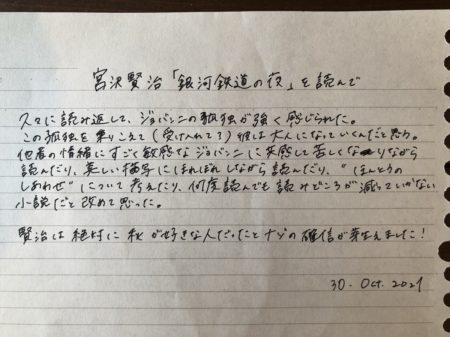 宮沢賢治「銀河鉄道の夜」を読んで
久々に読み返して、ジョバンニの孤独が強く感じられた。
この孤独を乗りこえて(受け入れて?)彼は大人になっていくんだと思う。
他者の情緒にすごく敏感なジョバンニに共感して苦しくなりながら
読んだり、美しい描写にほれぼれしながら読んだり、“ほんとうの
しあわせ”について考えたり、何度読んでも読みどころが減っていかない
小説だと改めて思った。
賢治は絶対に秋が好きな人だったとナゾの確信が芽生えました!
30. Oct. 2021